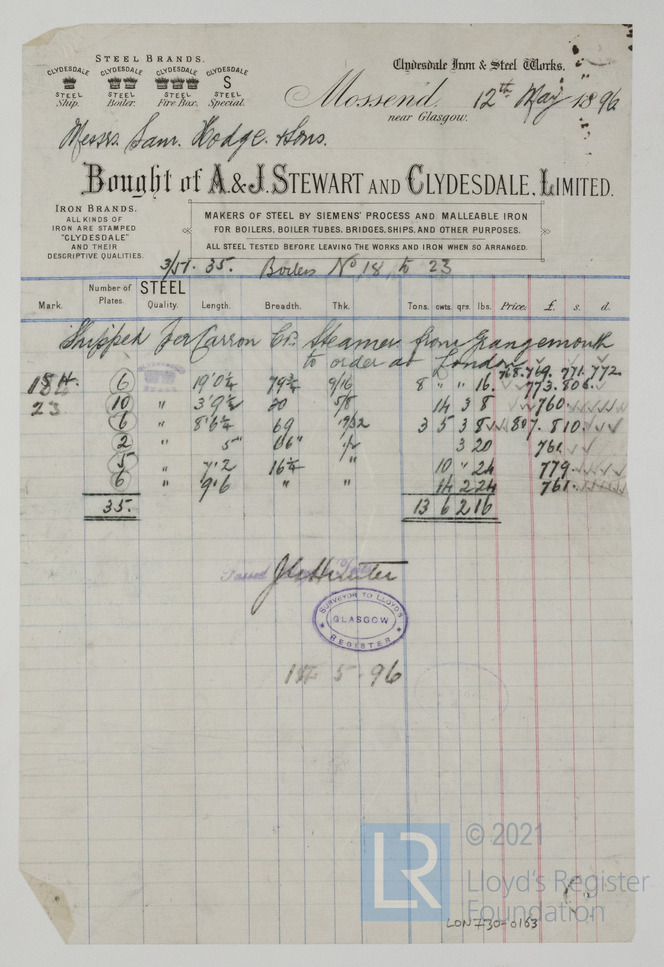 STEEL BRANDS.
CLYDESDALE CLYDESDALE CLYDESDALE CLYDESDALE
S
STEEL STEEL STEEL STEEL
Ship. Boiler. Fire Box. Special.
Clydesdale Iron & Steel Works.
Mossend, 12th May 1896
near Glasgow.
Messrs. Sam. Hodge & Sons.
Bought of A. & J. STEWART AND CLYDESDALE, LIMITED.
IRON BRANDS.
ALL KINDS OF
IRON ARE STAMPED
"CLYDESDALE"
AND THEIR
DESCRIPTIVE QUALITIES.
MAKERS OF STEEL BY SIEMENS' PROCESS AND MALLEABLE IRON
FOR BOILERS, BOILER TUBES, BRIDGES, SHIPS, AND OTHER PURPOSES.
ALL STEEL TESTED BEFORE LEAVING THE WORKS AND IRON WHEN SO ARRANGED.
35. Boilers No 18 to 23
Mark. Number of Plates. STEEL Quality. Length. Breadth. Thk. Tons. cwts. qrs. lbs. Price. £. s. d.
Shipped per Carron Co. Steamer from Grangemouth
to order at London
768. 769. 771. 772
18 6 19'0¼ 79¾ 9/16 8 " " 16. 773. 806.
23 10 " 3'9½ 30 5/8 14 3 8 760
6 " 8'6¼ 69 17/32 3 5 3 8 807. 810.
2 " 5" 66" ½ 3 20 761
5 " 7'2 16¼ " 10 " 24 779
6 " 9'6 " " 14 2 24 761
35. 13 6 2 16
Passed
J C Hunter
SURVEYOR TO LLOYD'S
GLASGOW
REGISTER
5 - 96
LR
© 2021
Lloyd's Register
Foundation
LON730-0163